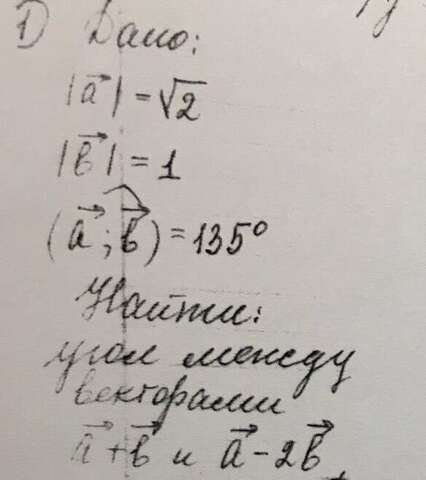 1) Дано:
|a⃗| = √2
|b⃗| = 1
(a⃗ ; b⃗) = 135°
Найти:
угол между
векторами
a⃗ + b⃗ и a⃗ - 2b⃗